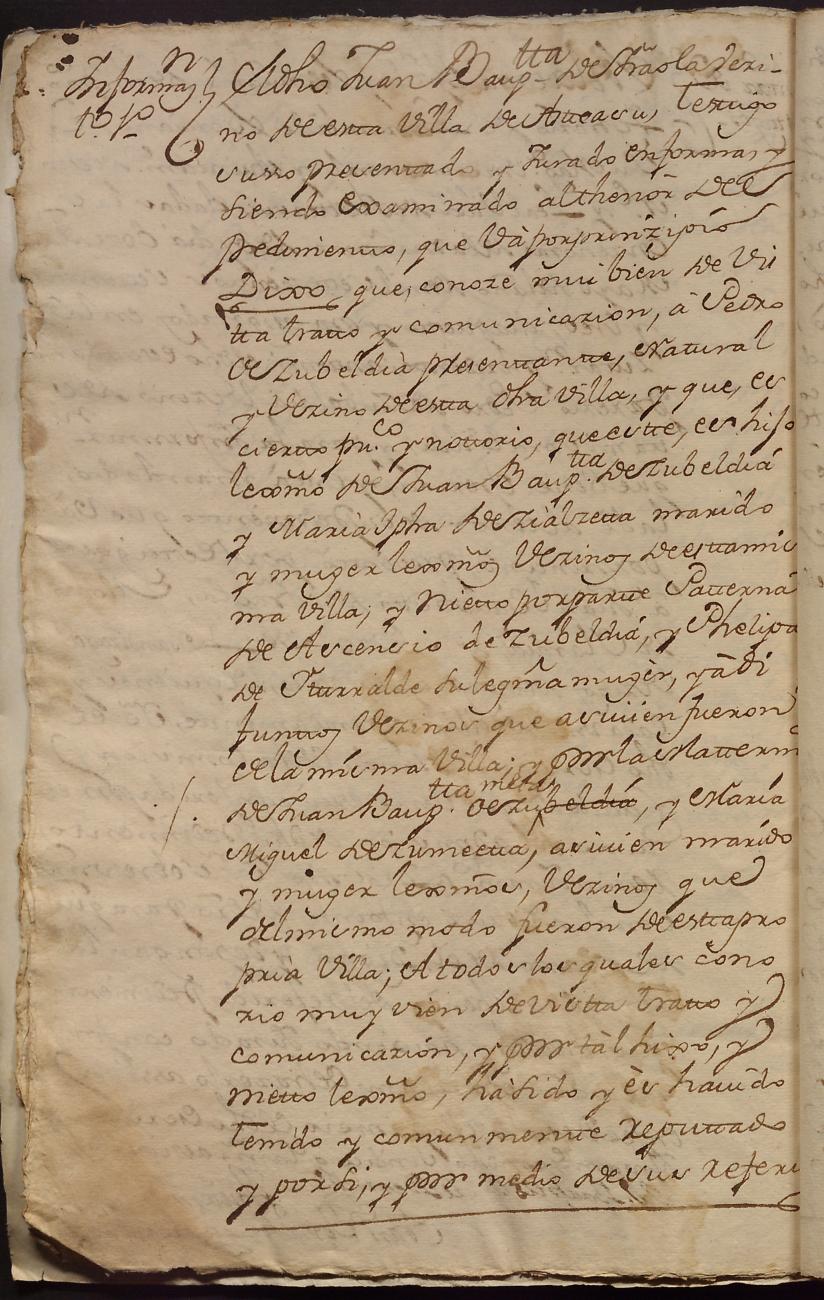 Informaz.n
t.o 1.o
El dho Juan Baup.tta de
no de esta Villa de Atteasu, testigo
susso presenttado y Jurado en forma, y
siendo examinado al thenòr del
pedimientto, que và por prinzipio
Dixo que, conoze mui bien de Vis
tta tratto y comunicazion, à Pedro
de Zubeldia presenttantte, Natural
y Vezino de esta dha Villa, y que, es
ciertto pu.co y nottorio, que estte, es hijo
lexmô de Juan Baup.tta de Zubeldiá
y Maria Jpha de marido
y muger lexmôs Vezinos de estta mis
ma Villa; y Nietto por partte Patterna
de Ascencio de Zubeldiá, y Phelipa
de Yturralde su legma mugèr, yà di
funttos Vezinos que asi vien fueron
de la misma Villa; y por la Matterna
de Juan Baup.tta de Zubeldiá, y Maria
Miguel de Zumeetta, asi vien marido
y muger lexmôs, Vezinos que
del mismo modo fueron de estta pro
pria Villa; A todos los quales cono
zio muy vien de Vistta tratto y
comunicazión, y por tàl hixo, y
nietto lexmô, hà sido y ès havido
tenido y comunmentte reputtado
y por si, y por medio de sus referi